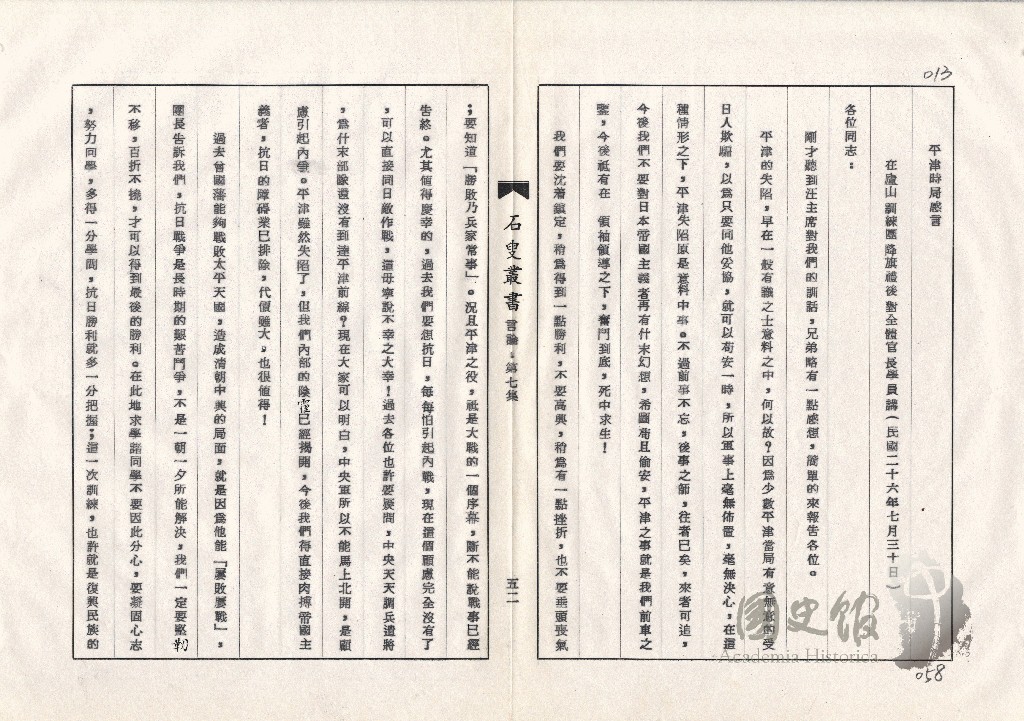 013
平津時局感言
在廬山訓練團降旗禮後對全體官長學員講（民國二十六年七月三十日）
各位同志：
剛才聽到汪主席對我們的訓話，兄弟略有一點感想，簡單的來報告各位。
平津的失陷，早在一般有識之士意料之中，何以故？因為少數平津當局有意無意的受
日人欺騙，以為只要同他妥協，就可以苟安一時，所以軍事上毫無佈置，毫無決心，在這
種情形之下，平津失陷原是意料中事。不過前事不忘，後事之師，往者已矣，來者可追，
今後我們不要對日本帝國主義者再有什末幻想，希圖苟且偷安，平津之事就是我們前車之
鑒，今後祗有在　領袖領導之下，奮鬥到底，死中求生！
我們要沈着鎮定，稍為得到一點勝利，不要高興，稍為有一點挫折，也不要垂頭喪氣
石叟叢書 言論．第七集 五二
；要知道「勝敗乃兵家常事」。況且平津之役，祗是大戰的一個序幕，斷不能說戰事已經
告終。尤其值得慶幸的，過去我們要想抗日，每每怕引起內戰，現在這個顧慮完全沒有了
，可以直接同日敵作戰，這毋寧說不幸之大幸！過去各位也許要疑問，中央天天調兵遣將
，為什末部隊還沒有到達平津前線？現在大家可以明白，中央軍所以不能馬上北開，是顧
慮引起內爭。平津雖然失陷了，但我們內部的陰霾已經揭開，今後我們得直接肉搏帝國主
義者，抗日的障碍業已排除，代價雖大，也很值得！
過去曾國藩能夠戰敗太平天國，造成清朝中興的局面，就是因為他能「屢敗屢戰」，
團長告訴我們，抗日戰爭是長時期的艱苦鬥爭，不是一朝一夕所能解決，我們一定要堅韌
不移，百折不撓，才可以得到最後的勝利。在此地求學諸同學不要因此分心，要凝固心志
，努力向學，多得一分學問，抗日勝利就多一分把握；這一次訓練，也許就是復興民族的
國史館
Academia Historica
058